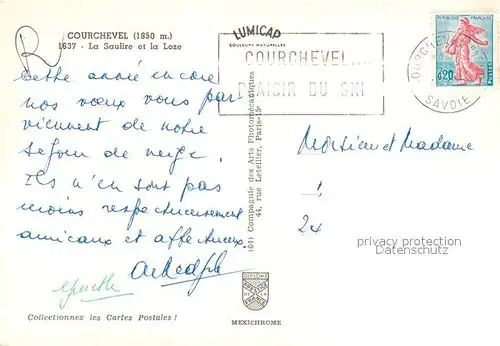 COURCHEVEL (1850 m.)
1637 - La Saulire et la Loze
R
LUMICAP
COULEURS NATURELLES
COURCHEVEL...
PLAISIR DU SKI
REPUBLIQUE FRANCAISE
0,20
POSTES
COURCHEVEL
SAVOIE
Cette année encore
nos vœux vous par
viennent de notre
séjour de neige.
Ils n'en sont pas
moins respectueusement
amicaux et affectueux.
Collectionnez les Cartes Postales !
(64) Compagnie des Arts Photomécaniques
44, rue Letellier, Paris-15e
DIPLOME
MEXICHROME
Monsieur et Madame
24
privacy protection
Datenschutz